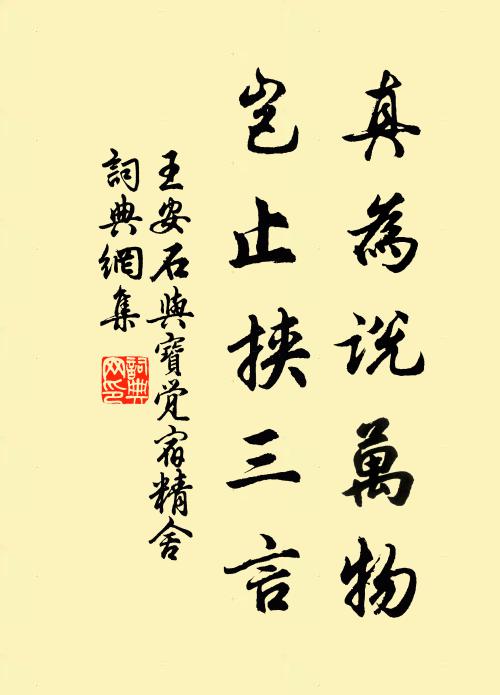 真為說萬物
豈止挾三言
王安石與寶覺宿精舍
詞典網集
詞典網印